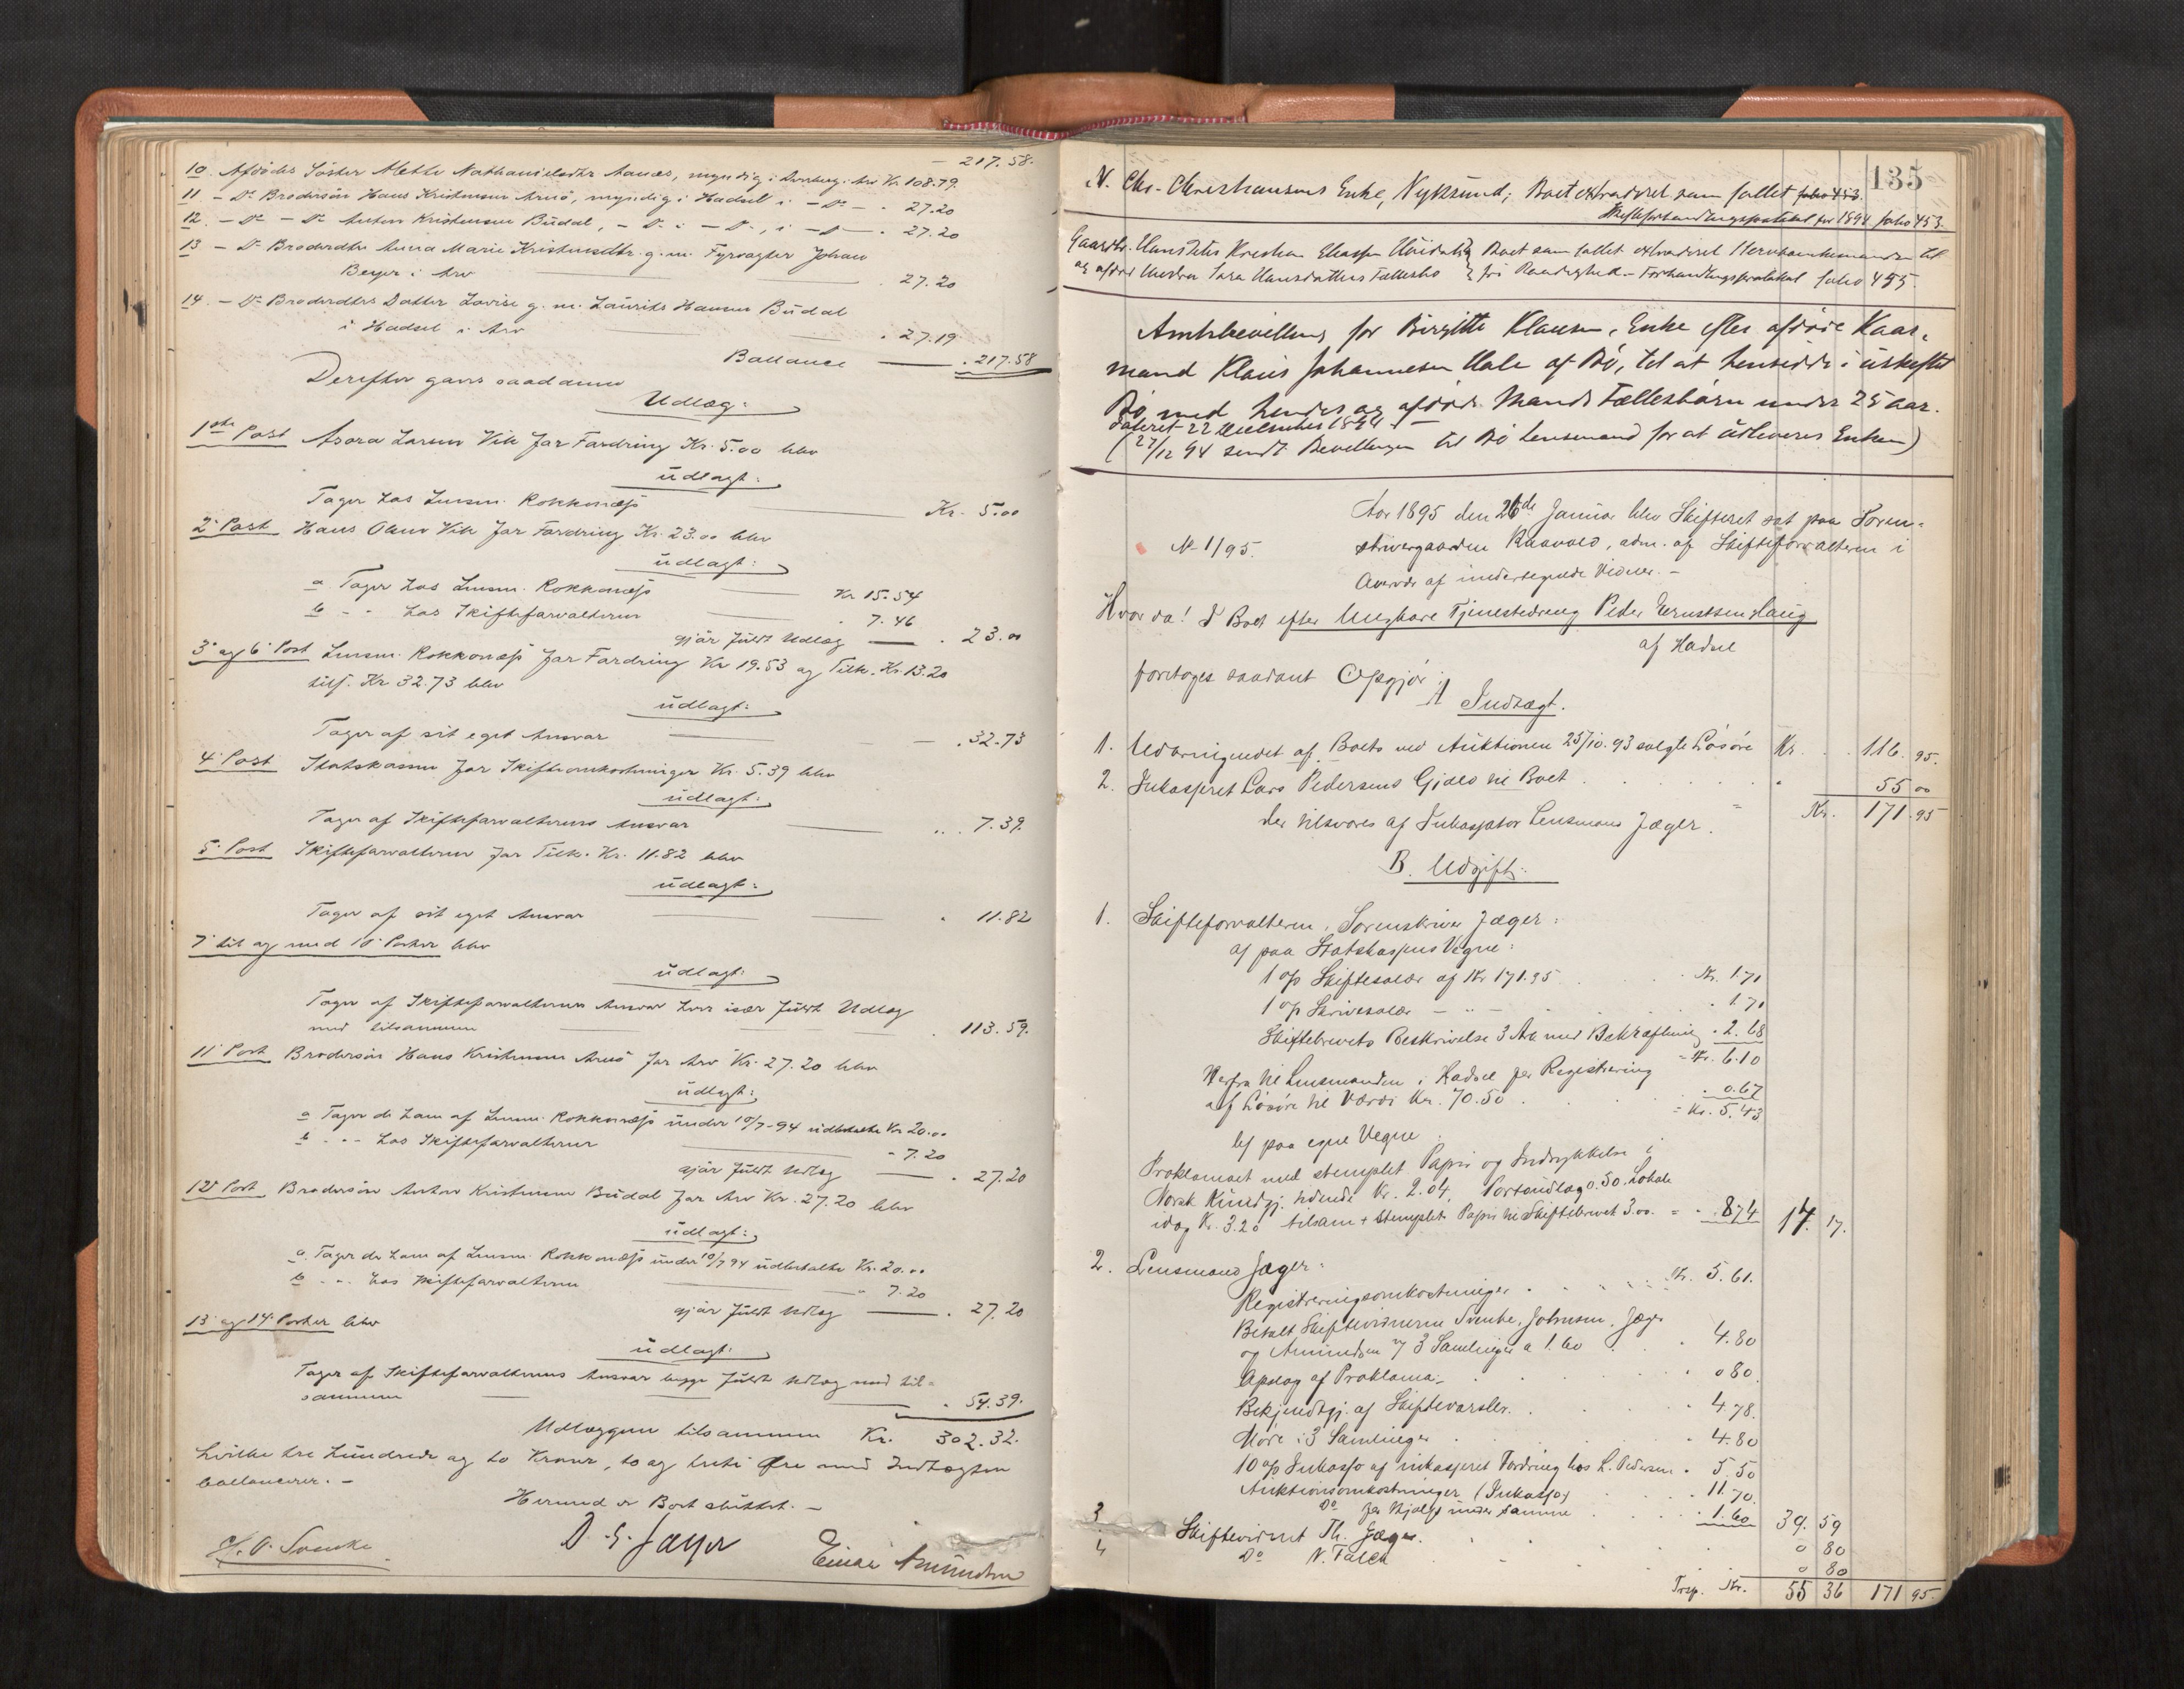 217.58.
10. Afdødes Søster Mette Nathanielsdtr Aanes, myndig i Arv Kr 108.79.
11 – Do Brodersøn Hans Kristensen Arnø, myndig i Hadsel i – Do – . 27.20
12. – Do – Do Anton Kristensen Budal, – Do i – Do –, i – D – . 27.20
13 – Do Broderdtr Anna Marie Kristensdtr. g. m. Fyrvogter Johan
Beyer i Arv . 27.20
14. – Do Broderdtrs Datter Lovise g. m. Laurits Hansen Budal
i Hadsel i Arv . 27.19
Ballance . 217.58
Derefter gaves saadanne
Udlæg:
1ste Post Asora Larsen Vik for Fordring Kr. 5.00 blev
udlagt:
Tager hos Lensm. Rokkonæss Kr. 5.00
2. Post Hans Olsen Vik for Fordring Kr. 23.00 blev
udlagt:
a Tager hos Lensm. Rokkonæss Kr 15.54
b – – hos Skifteforvalteren . 7.46
gjør fuldt Udlæg . 23.00
3. og 6. Post Lensm. Rokkonæss for Fordring Kr 19.53 og Tilk. Kr. 13.20
tils. Kr 32.73 blev
udlagt:
Tager af sit eget Ansvar . 32.73
4. Post Statskassen for Skifteomkostninger Kr. 5.39 blev
udlagt:
Tager af Skifteforvalterens Ansvar . . . 7.39.
5. Post Skifteforvalteren for Tilk. Kr. 11.82 blev
udlagt:
Tager af sit eget Ansvar . 11.82
7. til og med 10. Poster blev
udlagt:
Tager af Skifteforvalterens Ansvar hver især fuldt Udlæg
med tilsammen . 113.59.
11. Post Brodersøn Hans Kristensen Arnø for Arv Kr. 27.20 blev
udlagt:
a Tager de ham af Lensm. Rokkonæss under 10/7-94 udbetalte Kr 20.00
b . – – hos Skifteforvalteren – 7.20
gjør fuldt Udlæg . 27.20
12. Post Brodersøn Anton Kristensen Budal for Arv Kr. 27.20 blev
udlagt:
a. Tager de ham af Lensm. Rokkonæss under 10/7 94 udbetalte Kr. 20.00
b – – . hos Skifteforvalteren . 7.20
gjør fuldt Udlæg . 27.20
13. og 14. Poster blev
udlagt:
Tager af Skifteforvalterens Ansvar begge fuldt Udlæg med til-
sammen . 54.39.
Udlæggene tilsammen Kr. 302.32.
hvilke tre hundrede og to Kroner, to og treti Øre med Indtægten
ballancerer. –
Hermed er Boet sluttet. –
H. O. Svenke D. G. Jæger Einar Amundsen
135
N. Chr. Christiansens Enke, Nyksund; Boet extraderet som fallet folio 453.
Skifteforhandlingsprotokol for 1894 folio 453.
Gaardbr. Hans Peter Kristian Eliassen Boet som fallet extraderet til
og afdøde Hustru Sara Hansdatters Fællesbo fri Raadighed – Forhandlingsprotokol folio 455.
Amtsbevilling for Birgitte Klausen, Enke efter afdøde Kaar-
mand Klaus Johannesen Hale af Bø, til at hensidde i uskiftet
Bo med hendes og afdøde Mands Fællesbørn under 25 aar.
Dateret 22 December 1894 –
(27/12 94 sendt Bevillingen til Bø Lensmand for at udleveres Enken)
Aar 1895 den 26de Januar blev Skifteret sat paa Soren-
No 1/95. skrivergaarden Raavold, adm. af Skifteforvalteren i
Overvær af undertegnede Vidner. –
Hvor da! I Boet efter Ungkare Tjenestedreng Peder Ernstsen Haug
af Hadsel
foretoges saadant Opgjør:
A Indtægt.
1. Udbringendet af Boets ved Auktionen 25/10.93 solgte Løsøre Kr. . . 116.95.
2. Inkasseret Lars Pedersens Gjæld til Boet . . . . . 55 00
der tilsvares af Inkassator Lensmand Jæger. = Kr. 171.95
B. Udgift:
1. Skifteforvalteren, Sorenskriver Jæger:
a/ paa Statskassens Vegne:
1 o/o Skiftesalær af Kr 171.95 . . Kr. 1.71
1 o/o Skrivesalær – – – . . 1.71
Skiftebrevets Beskrivelse 3 Ark med Bekræftning . 2.68
= Kr. 6.10
Herfra til Lensmanden i Hadsel for Registrering
af Løsøre til Værdi Kr. 70.50 . . . 0.67
= Kr. 5.43
b/ paa egne Vegne:
Proklamaet med stemplet Papir og Indrykkelse i
Norsk Kundgj. tidende Kr. 2.04, Portoudlæg 0.50. Lokale
idag Kr. 3.20 tilsam + stemplet Papir til Skiftebrevet 3.00. = . 8.74 14. 17.
2. Lensmand Jæger:
Registreringsomkostninger . . . . Kr. 5.61.
Betalt Skiftevidnerne Svenke, Johnsen, Jæger
og Amundsen 3 Samlinger a 1.60 . . 4.80
Opslag af Proklama – . . . 0 80.
Bekjendtgj. af Skiftevarsler. . . . 4.78.
Møde i 3 Samlinger . . . 4.80
10 o/o Inkasso af inkasseret Fordring hos L. Pedersen . 5.50
Auktionsomkostninger (Inkasso) . . 11.70.
Do for Hjælp under samme . . . 1.60 39. 59
3 Skiftevidnet Th. Jæger. . . . 0 80
4 Do N. Falck . . . 0 80
Trsp. Kr. 55 36 171 95.